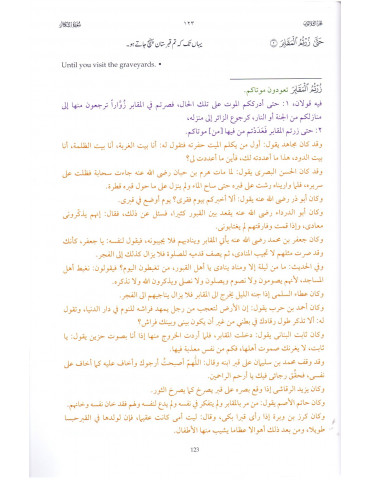 ١٢٣
حَتَّىٰ زُرْتُمُ الْمَقَابِرَ ﴿٢﴾
یہاں تک کہ تم قبرستان پہنچ جاتے ہو۔
Until you visit the graveyards.
زُرْتُمُ الْمَقَابِرَ تعودون موتاكم.
فيه قولان، ١: حتى أدرككم الموت على تلك الحال، فصرتم في المقابر زُوَّارًا ترجعون منها إلى
منازلكم من الجنة أو النار، كرجوع الزائر إلى منزله،
٢: حتى زرتم المقابر فَعَدَدْتم من فيها (من) موتاكم.
وقد كان مجاهد يقول: أول من يكلم الميت حفرته فتقول له: أنا بيت الغربة، أنا بيت الظلمة، أنا
بيت الدود، هذا ما أعددته لك، فأين ما أعددت لي؟
وقد كان الحسن البصري يقول: لما مات هرم بن حيان رضي الله عنه جاءت سحابة فظلت على
سريره، فلما واريناه رشت على قبره حتى ساح الماء ولم ينزل على ما حول قبره قطرة.
وكان أبو ذر رضي الله عنه يقول: ألا أخبركم بيوم فقري؟ يوم أوضع في قبري.
وكان أبو الدرداء رضي الله عنه يقعد بين القبور كثيرا، فسئل عن ذلك، فقال: إنهم يذكّرونی
معادي، وإذا قمت وفارقتهم لم يغتابونی.
وكان جعفر بن محمد رضي الله عنه يأتي المقابر ويناديهم فلا يجيبونه، فيقول لنفسه: يا جعفر، كأنك
قد صرت مثلهم لا تجيب المنادي، ثم يصف قدميه للصلوة فلا يزال كذلك إلى الفجر.
وفي الحديث: ما من ليلة إلا ومناد ينادي يا أهل القبور، من تغبطون اليوم؟ فيقولون: نغبط أهل
المساجد، لأنهم يصومون ولا نصوم ويصلون ولا نصلى ويذكرون الله ولا نذكره.
وكان عطاء السلمي إذا جنه الليل يخرج إلى المقابر فلا يزال يناجيهم الى الفجر.
وكان أحمد بن حرب يقول: إن الأرض لتتعجب من رجل يمهد فراشه للنوم في دار الدنيا، وتقول
له: ألا تذكر طول رقادك في بطني من غير أن يكون بيني وبينك فراش؟
وكان ثابت البناني يقول: دخلت المقابر، فلما أردت الخروج منها إذا أنا بصوت حزين يقول: يا
ثابت، لا يغرنك صموت أهلها، فكم من نفس معذبة فيها.
وقد وقف محمد بن سليمان على قبر ابنه وقال: اللَّهُمَّ أصبحتُ أرجوك وأخاف عليه كما أخاف على
نفسي، فحقّق رجائي فيك يا أرحم الراحمين.
وكان يزيد الرقاشي إذا وقع بصره على قبر يصرخ كما يصرخ الثور.
وكان حاتم الأصم يقول: من مر بالمقابر ولم يتفكر في نفسه ولم يدع لنفسه ولهم فقد خان نفسه وخانهم.
وكان كرز بن وبرة إذا رأى قبرا بكى، وقال: ليت أمي كانت عقيما، فإن لولدها في القبر حبسا
طويلا، ومن بعد ذلك أهوالا عظاما يشيب منها الأطفال.
123